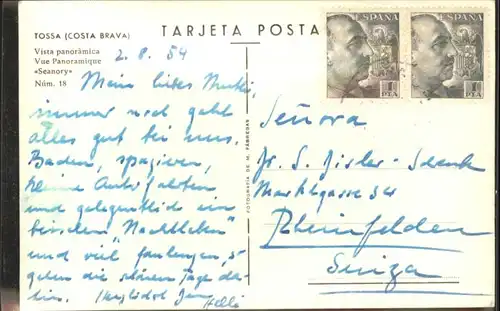 TOSSA (COSTA BRAVA)
TARJETA POSTA
Vista panorámica
Vue Panoramique
«Seanory»
Núm. 18
2. 8. 54
Mein liebes Mutti,
immer noch geht
alles gut bei uns.
Baden, spazieren,
kleine Autofahrten
und gelegentlich ein
bisschen "Nachtleben"
und viel faulenzen, so
gehen die schönen Tage da-
hin. Herzlichst Dein
FOTOGRAFÍA DE M. FÁBREGAS
ESPAÑA
1
PTA
ESPAÑA
1
PTA
Señora
Fr. S. Disler-Schenk
Marktgasse 34
Rheinfelden
Suiza